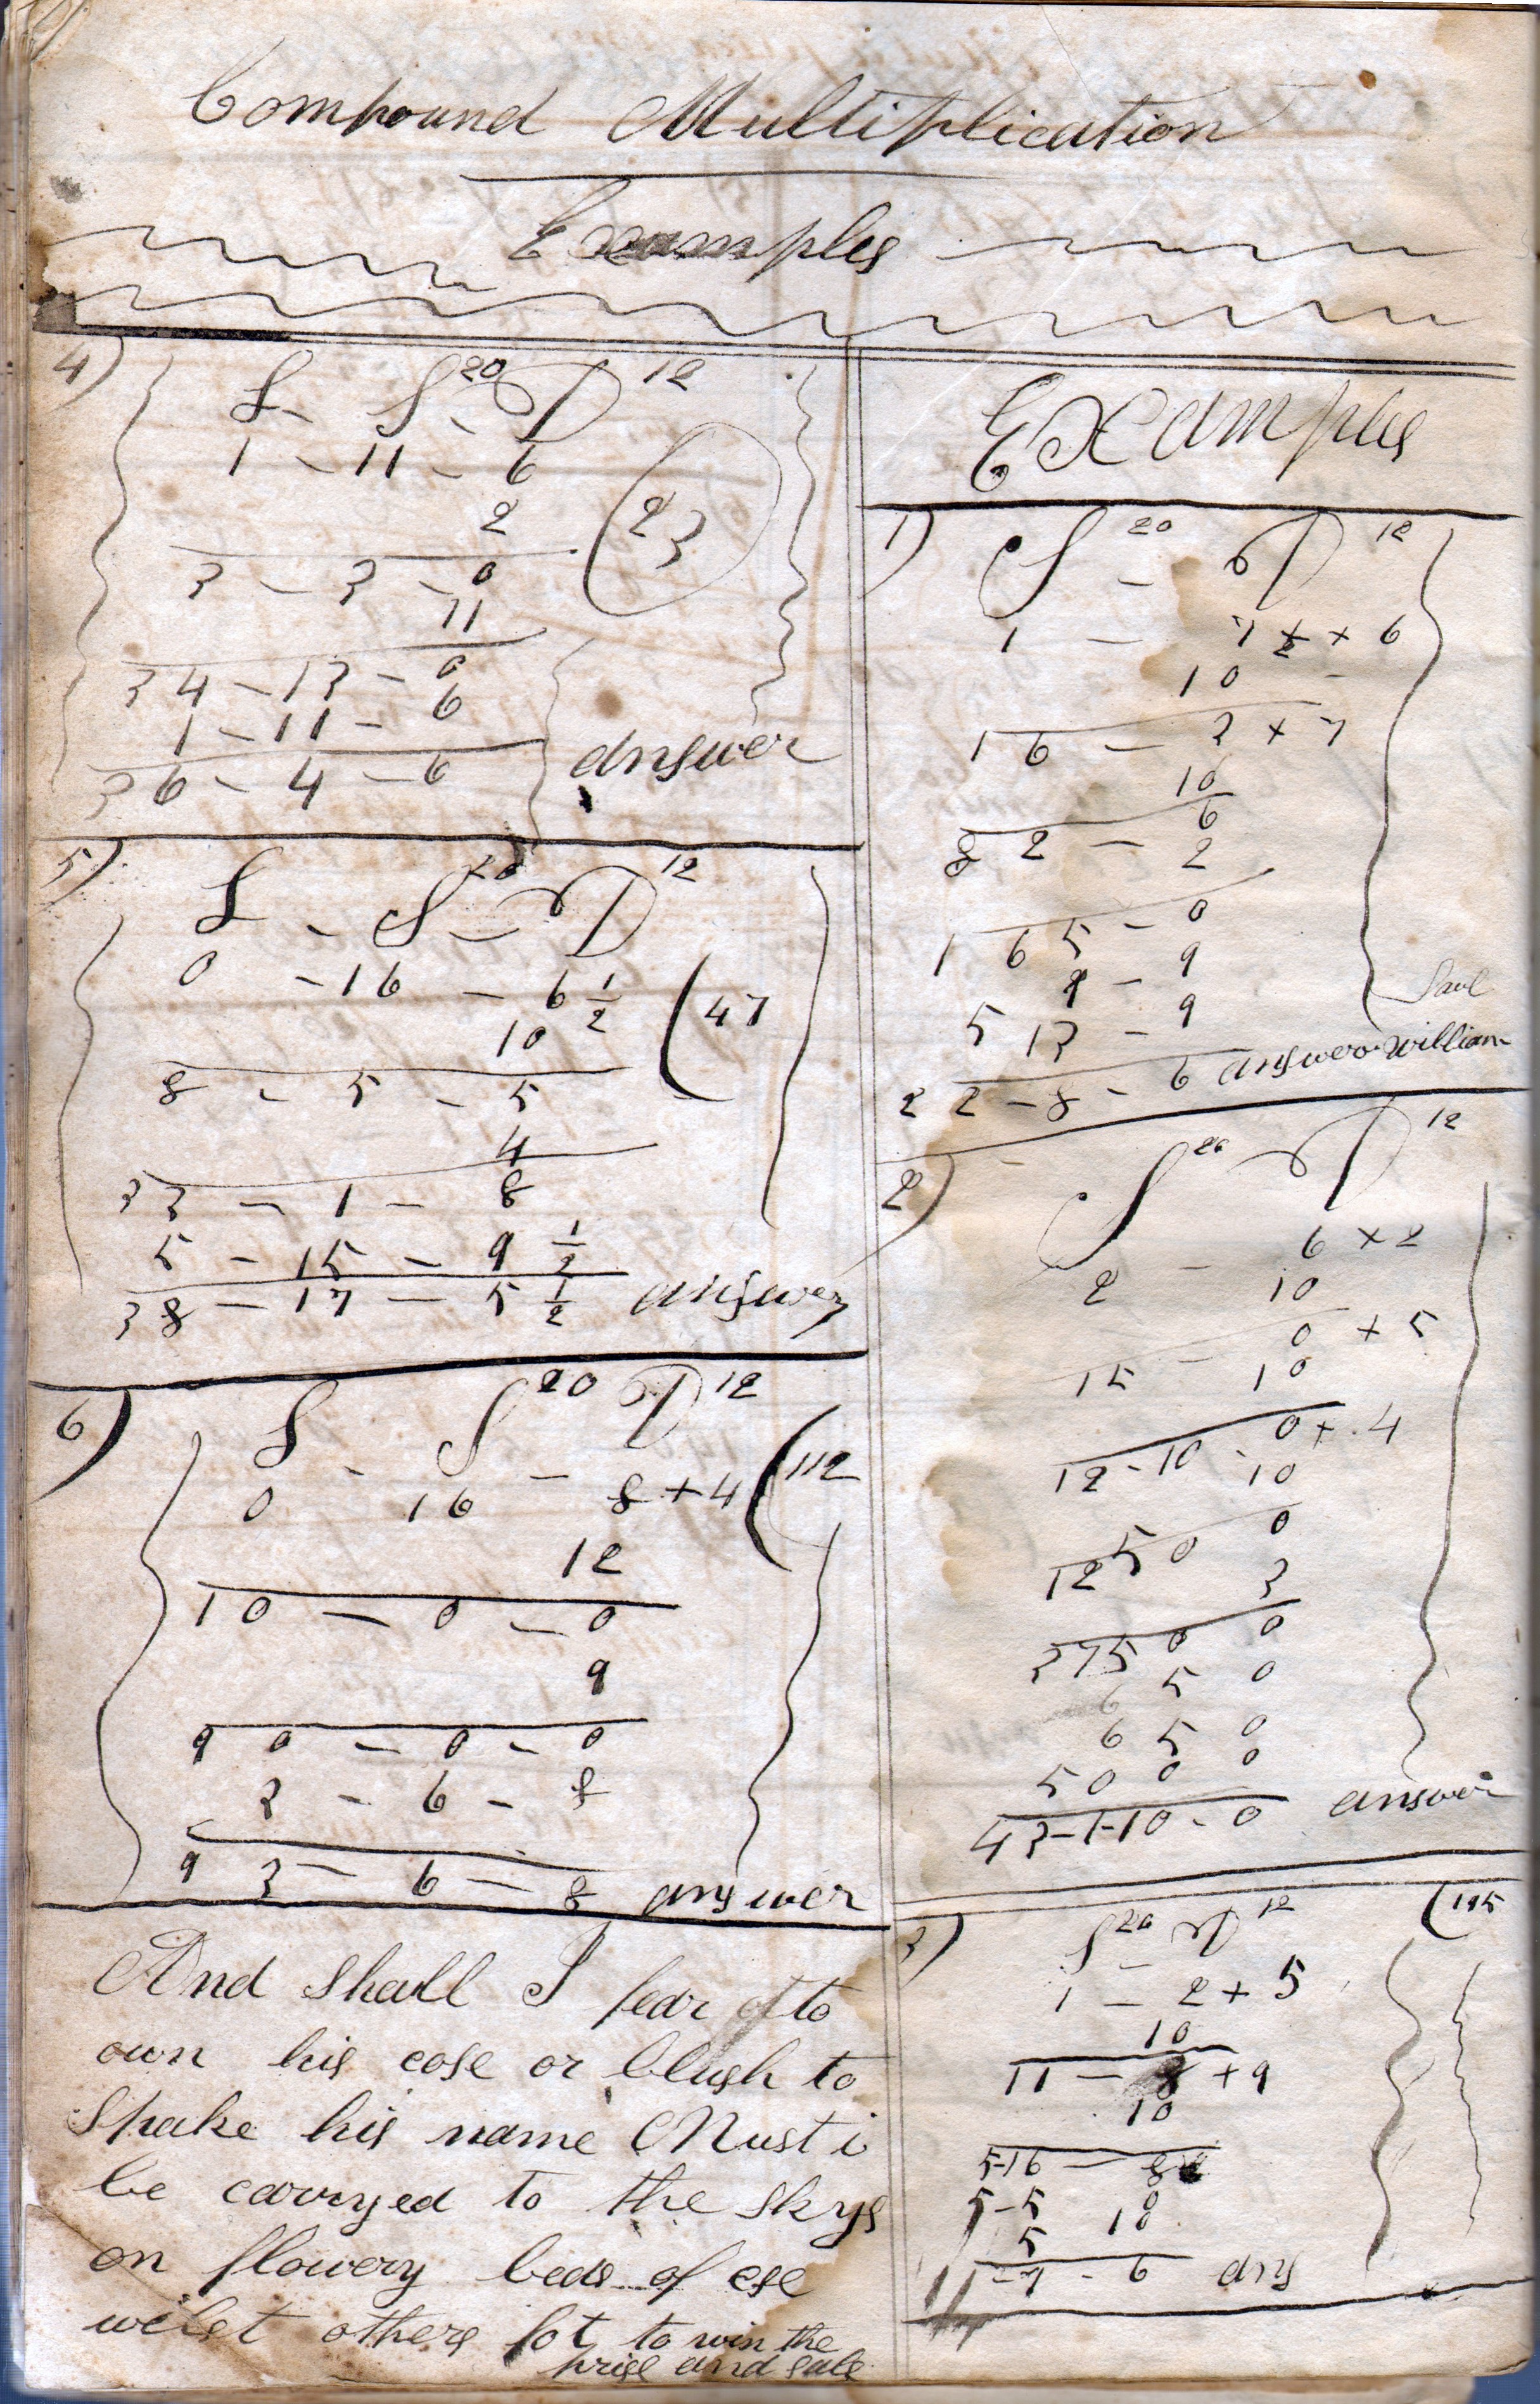 Compound Multiplication
Examples
4)
L - S 20 D 12
1 - 11 - 6
2 (23
3 - 3 - 0
11
34 - 13 - 0
1 - 11 - 6
36 - 4 - 6 answer
5)
L - S 20 - D 12
0 - 16 - 6 1/2 (47
10
8 - 5 - 5
4
33 - 1 - 8
5 - 15 - 9 1/2
38 - 17 - 5 1/2 answer
6)
L - S 20 D 12
0 16 - 8 + 4 (112
12
10 - 0 - 0
9
90 - 0 - 0
3 - 6 - 8
93 - 6 - 8 answer
And Shall I fear of to
own his cose or blush to
Spake his name Must i
be carryed to the skys
on flowery beds of ese
wilst others fot to win the
prise and sale
Examples
1)
S 20 - D 12
1 - 7 1/2 × 6
10
16 - 3 × 7
10
8 2 - 6
2
165 - 0
9 - 9
5 13 - 9
22 - 8 - 6 answer William
Saul
2)
S 20 D 12
2 - 6 × 2
10
15 - 0 + 5
10
12 - 10 - 0 + 4
10
125 0 0
3
375 0 0
6 5 0
6 5 0
50 0 0
43-1-10 - 0 answer
3)
S 20 - D 12 (195
1 - 2 + 5
10
11 - 8 + 9
10
5-16 - 8
5-5 0
5 10
11 - 7 - 6 ans